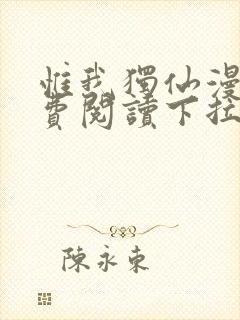 惟我獨仙漫
費閱讀下拉
陳永東